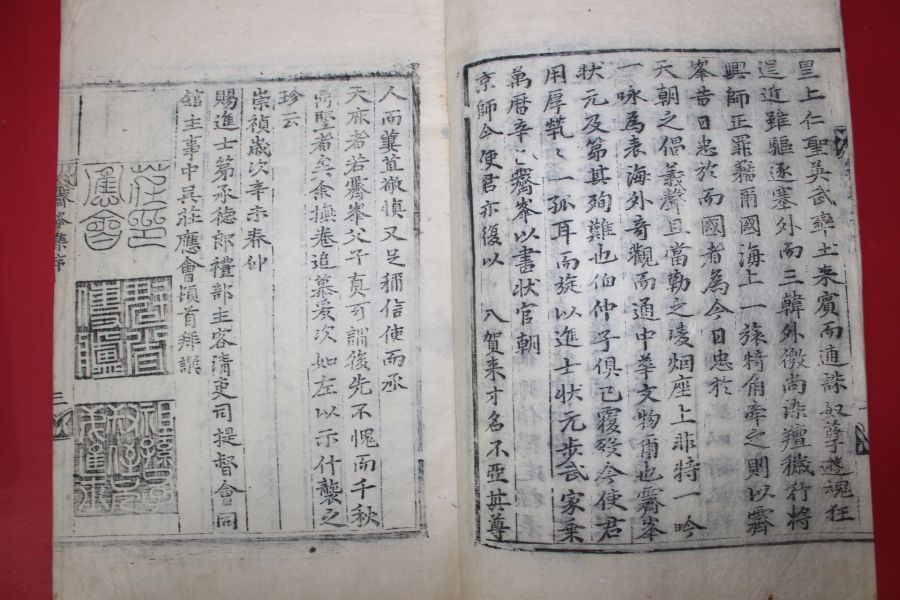 皇上仁聖英武率土来賔而通誅奴孽遊魂狂
逞近雖驅逐塞外而三韓外徼尚染羶穢行將
興師正罪繇爾國海上一旅犄角牽之則以霽
峯昔日忠於而國者為今日忠於
天朝之倡義聲且當勒之凌烟座上非特一吟
一咏為表海外奇觀而通中華文物爾也霽峯
状元及第其殉難也伯仲子俱已覆發今使君
用厚煢〻一孤耳而旋以進士状元步武家乗
萬曆辛巳霽峯以書状官朝
京師今使君亦復以 入賀来才名不亞其尊
人而冀直敬慎又足稱信使而丞
天庥者若霽峯父子真可謂後先不愧而千秋
不墜者矣余撫卷追慕爰次如左以示什襲之
珍云
崇禎歲次辛未春仲
賜進士第承德郎禮部主客清吏司提督會同
舘主事中吳莊應會頓首拜譔
莊
應會
霽峯集序
三